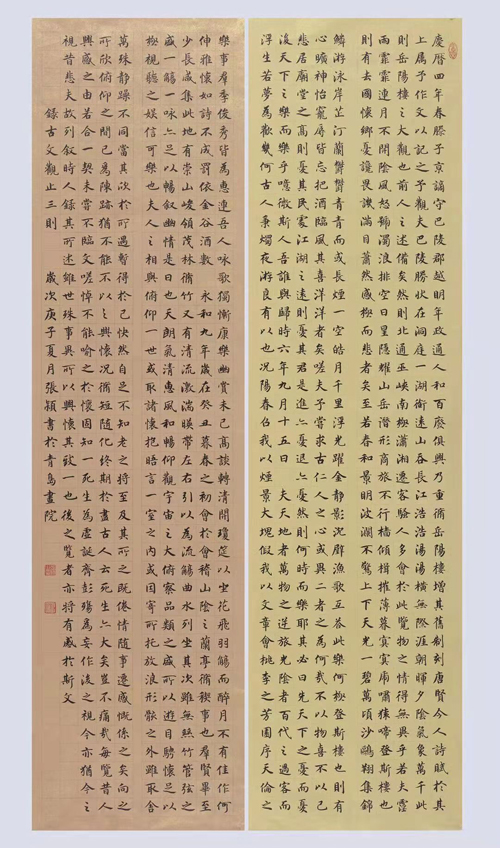 慶曆四年春滕子京謫守巴陵郡越明年政通人和百廢俱興乃重脩岳陽樓增其舊制刻唐賢今人詩賦於其
上屬予作文以記之予觀夫巴陵勝狀在洞庭一湖銜遠山吞長江浩浩湯湯橫無際涯朝暉夕陰氣象萬千此
則岳陽樓之大觀也前人之述備矣然則北通巫峽南極瀟湘遷客騷人多會於此覽物之情得無異乎若夫霪
雨霏霏連月不開陰風怒號濁浪排空日星隱耀山岳潛形商旅不行檣傾楫摧薄暮冥冥虎嘯猿啼登斯樓也
則有去國懷鄉憂讒畏譏滿目蕭然感極而悲者矣至若春和景明波瀾不驚上下天光一碧萬頃沙鷗翔集錦
鱗游泳岸芷汀蘭鬱鬱青青而或長煙一空皓月千里浮光躍金靜影沉璧漁歌互答此樂何極登斯樓也則有
心曠神怡寵辱皆忘把酒臨風其喜洋洋者矣嗟夫予嘗求古仁人之心或異二者之為何哉不以物喜不以己
悲居廟堂之高則憂其民處江湖之遠則憂其君是進亦憂退亦憂然則何時而樂耶其必曰先天下之憂而憂
後天下之樂而樂乎噫微斯人吾誰與歸時六年九月十五日 夫天地者萬物之逆旅光陰者百代之過客而
浮生若夢為歡幾何古人秉燭夜游良有以也況陽春召我以煙景大塊假我以文章會桃李之芳園序天倫之
樂事羣季俊秀皆為惠連吾人咏歌獨慚康樂幽賞未已高談轉清開瓊筵以坐花飛羽觴而醉月不有佳作何
伸雅懷如詩不成罰依金谷酒數 永和九年歲在癸丑暮春之初會於會稽山陰之蘭亭脩稧事也羣賢畢至
少長咸集此地有崇山峻領茂林脩竹又有清流激湍暎帶左右引以為流觴曲水列坐其次雖無絲竹管弦之
盛一觴一咏亦足以暢敘幽情是日也天朗氣清惠風和暢仰觀宇宙之大俯察品類之盛所以遊目騁懷足以
極視聽之娛信可樂也夫人之相與俯仰一世或取諸懷抱晤言一室之內或因寄所托放浪形骸之外雖取舍
萬殊靜躁不同當其欣於所遇暫得於己快然自足不知老之將至及其所之既倦情隨事遷感慨係之矣向之
所欣俯仰之間已為陳跡猶不能不以之興懷況脩短隨化終期於盡古人云死生亦大矣豈不痛哉每覽昔人
興感之由若合一契未嘗不臨文嗟悼不能喻之於懷固知一死生為虛誕齊彭殤為妄作後之視今亦猶今之
視昔悲夫故列敘時人錄其所述雖世殊事異所以興懷其致一也後之覽者亦將有感於斯文
錄古文觀止三則 歲次庚子夏月張穎書於青鳥畫院